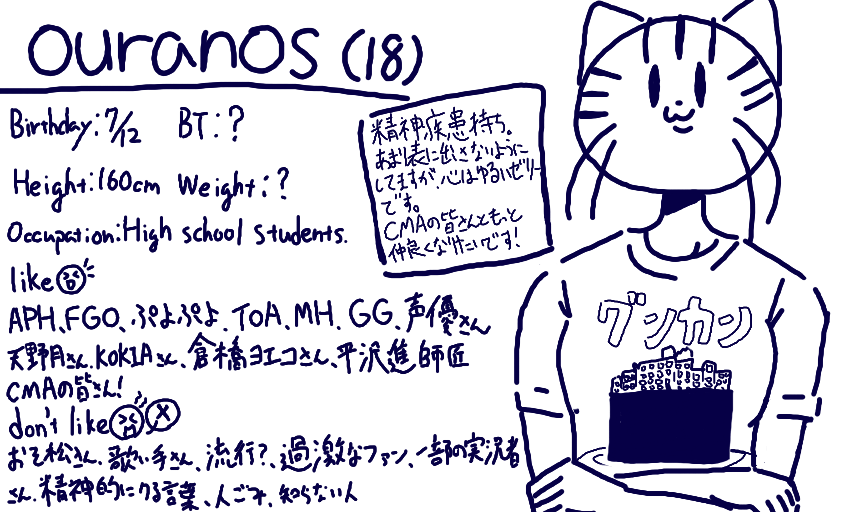 ouranos (18)
Birthday:7/12 BT:?
Height:160cm Weight:?
Occupation:High school students.
like
APH、FGO、ぷよぷよ、ToA、MH、GG、声優さん
天野月さん、KOKIAさん、倉橋ヨエコさん、平沢進師匠
CMAの皆さん!
don't like
おそ松さん、歌い手さん、流行?、過激なファン、一部の実況者
さん、精神的にくる言葉、人ごみ、知らない人
精神疾患持ち。
あまり表に出さないように
してますが、心はゆるいゼリー
です。
CMAの皆さんともっと
仲良くなりたいです!
グンカン